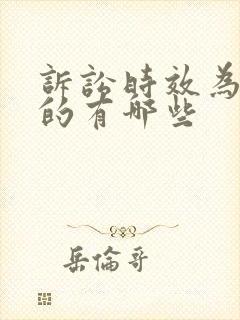 訴訟时效為
的有哪些
岳倫哥